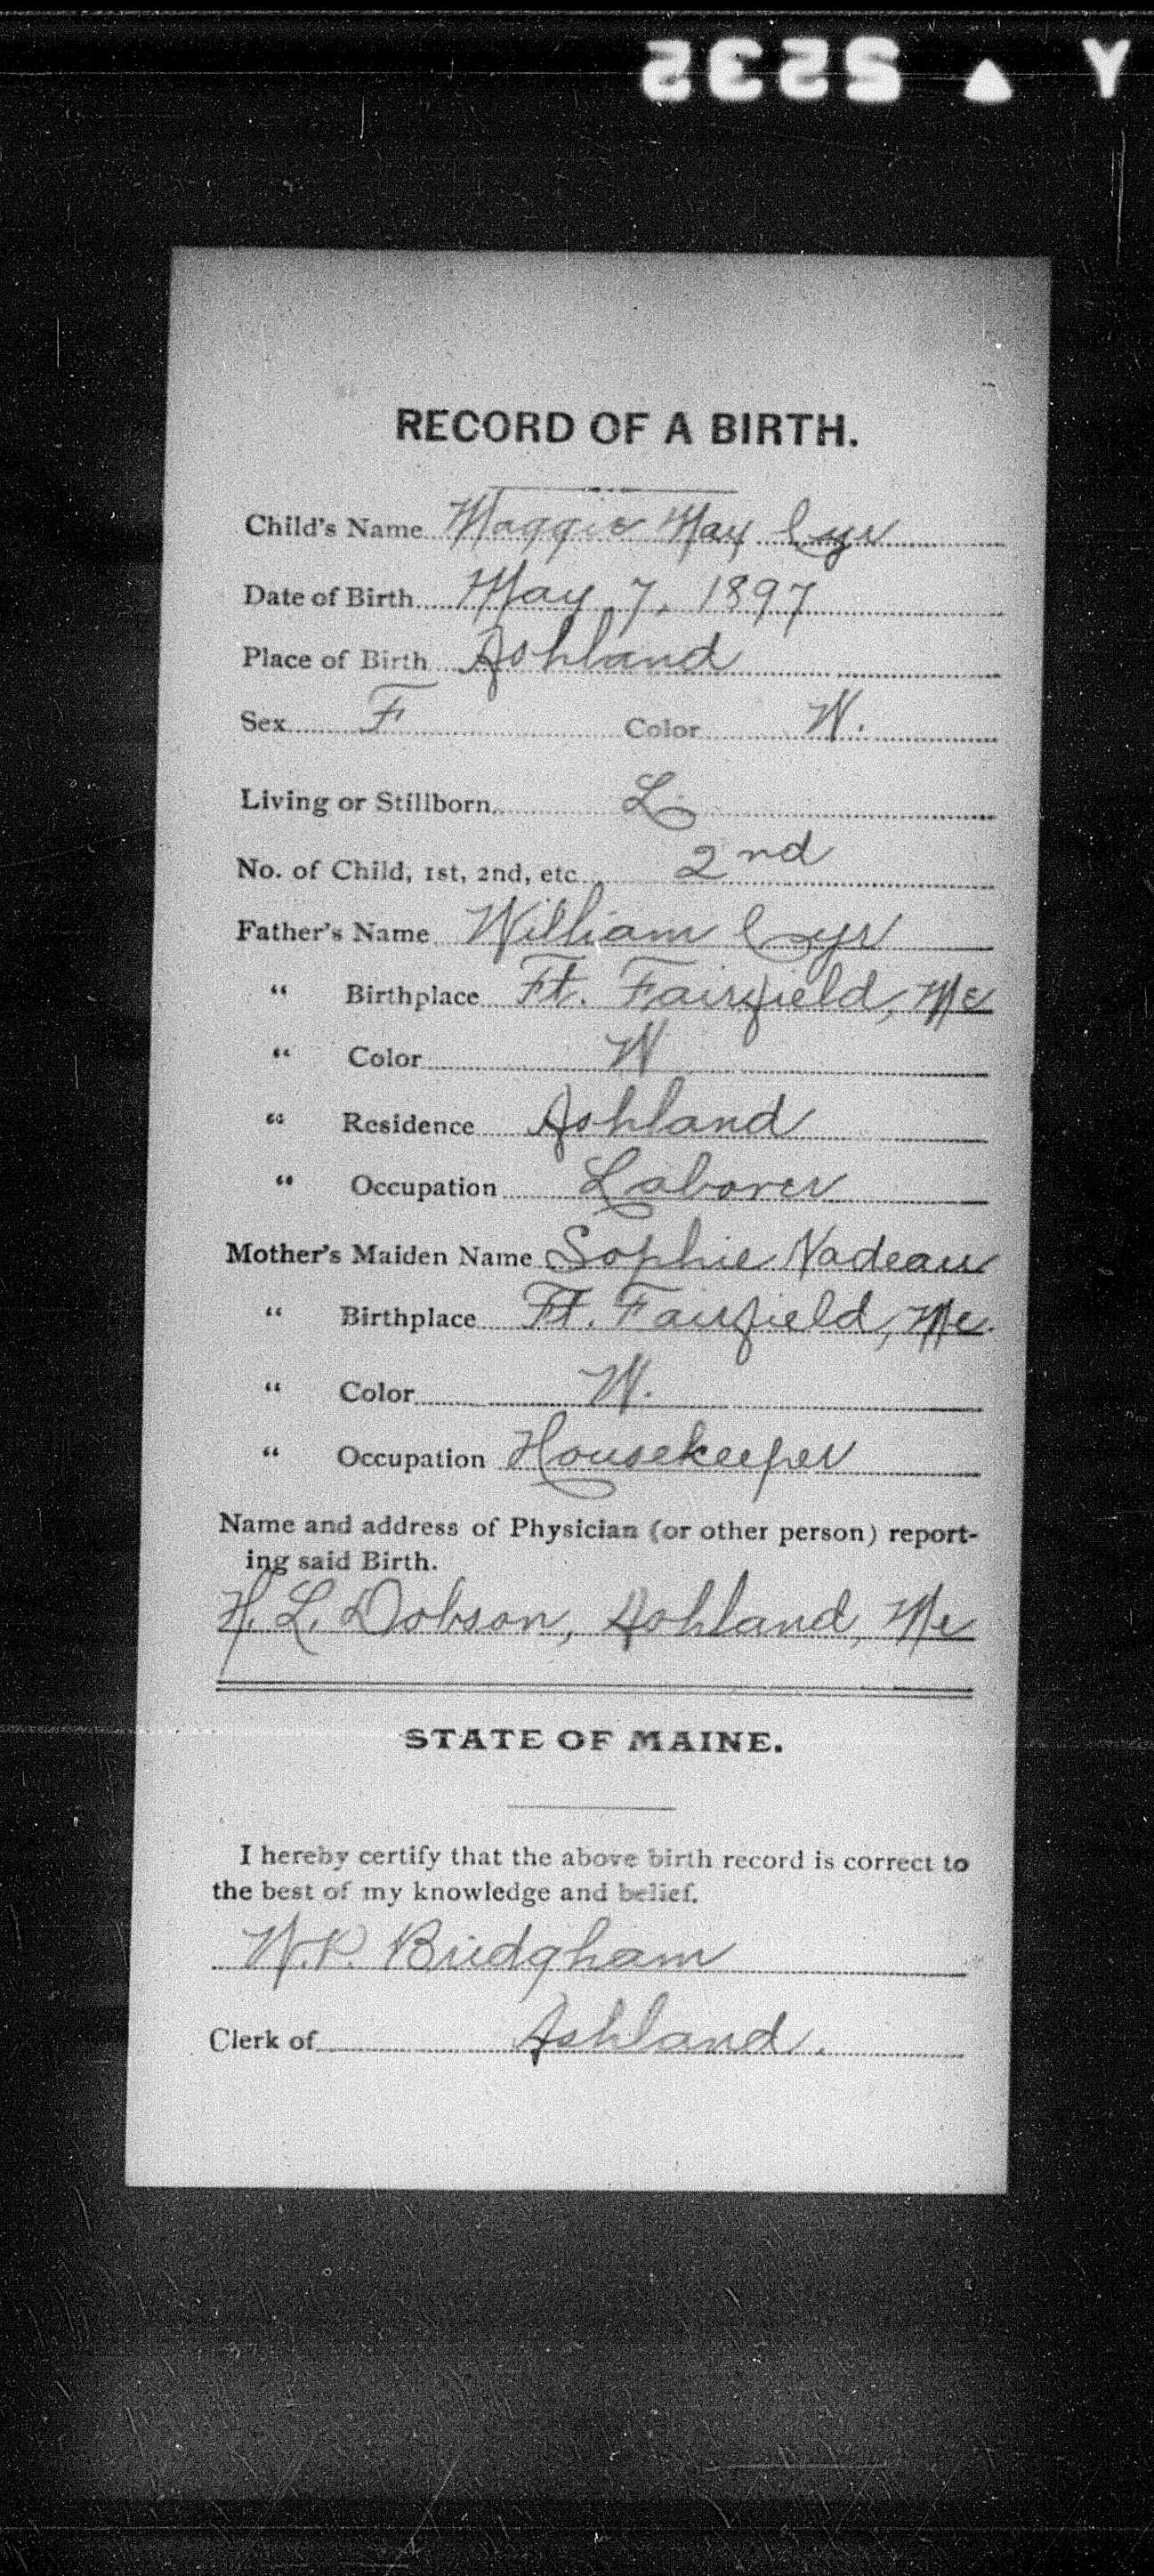 RECORD OF A BIRTH.
Child's Name Maggie May Cyr
Date of Birth May 7, 1897
Place of Birth Ashland
Sex F Color W.
Living or Stillborn L
No. of Child, 1st, 2nd, etc. 2nd
Father's Name William Cyr
" Birthplace Ft. Fairfield, Me
" Color W
" Residence Ashland
" Occupation Laborer
Mother's Maiden Name Sophie Nadeau
" Birthplace Ft. Fairfield, Me.
" Color W.
" Occupation Housekeeper
Name and address of Physician (or other person) report-
ing said Birth.
H. L. Dobson, Ashland, Me
STATE OF MAINE.
I hereby certify that the above birth record is correct to
the best of my knowledge and belief.
W.P. Bridgham
Clerk of Ashland.